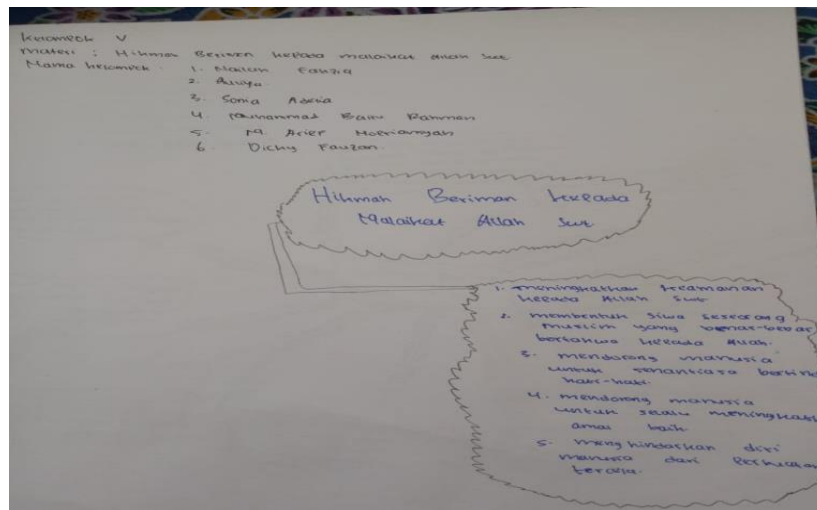 Kelompok V
Materi : Hikmah Beriman kepada malaikat Allah Swt
Nama kelompok : 1. Nailun Fauzia
2. Auliya
3. Sonia Adelia
4. Muhammad Bainu Rahman
5. M. Arief
6. Dicky Fauzan.
Hikmah Beriman kepada
Malaikat Allah Swt
1. meningkatkan keamanan
kepada Allah Swt
2. membentuk Jiwa seseorang
muslim yang benar-benar
bertakwa kepada Allah.
3. mendorong manusia
untuk senantiasa bertind
hati-hati.
4. mendorong manusia
untuk selalu meningkatk
amal baik
5. menghindarkan diri
manusia dari perbuatan
tercela.